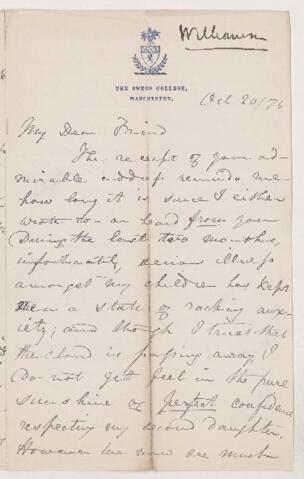 Williamson
THE OWENS COLLEGE,
MANCHESTER,
Oct 20/76
My Dear Friend
The receipt of your ad-
mirable address reminds me
how long it is since I either
wrote to - or heard from you
During the last two months,
unfortunately, serious illness
amongst my children has kept
me in a state of racking anx-
iety; and though I trust that
the cloud is passing away I
do not yet feel in the pure
sunshine of perfect confidence
respecting my second daughter.
However we now see much